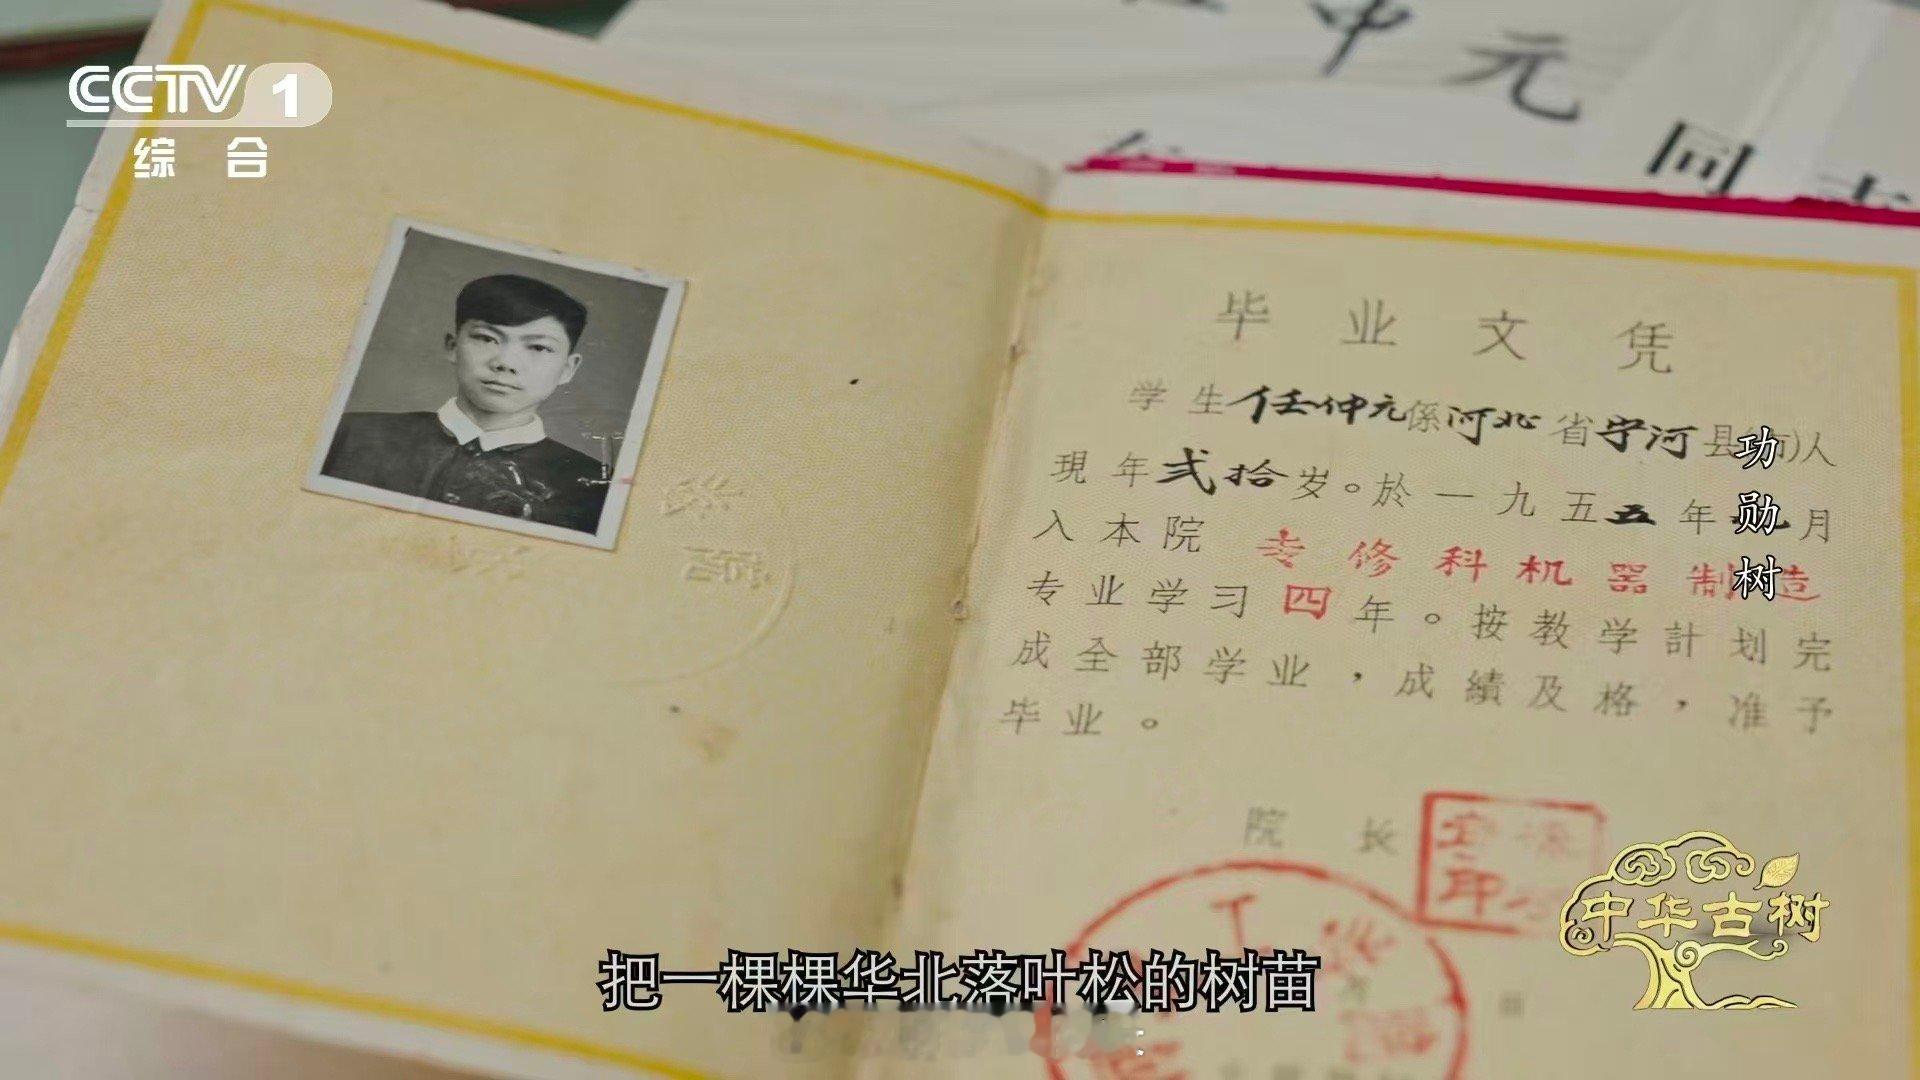 CCTV 1
综合
中元
同志
毕业文凭
学生任仲元係河北省宁河县(市)人
現年弍拾岁。於一九五五年九月
入本院专修科机器制造
专业学习四年。按教学計划完
成全部学业，成績及格，准予
毕业。
院长
印
工
功勋树
中华古树
把一棵棵华北落叶松的树苗